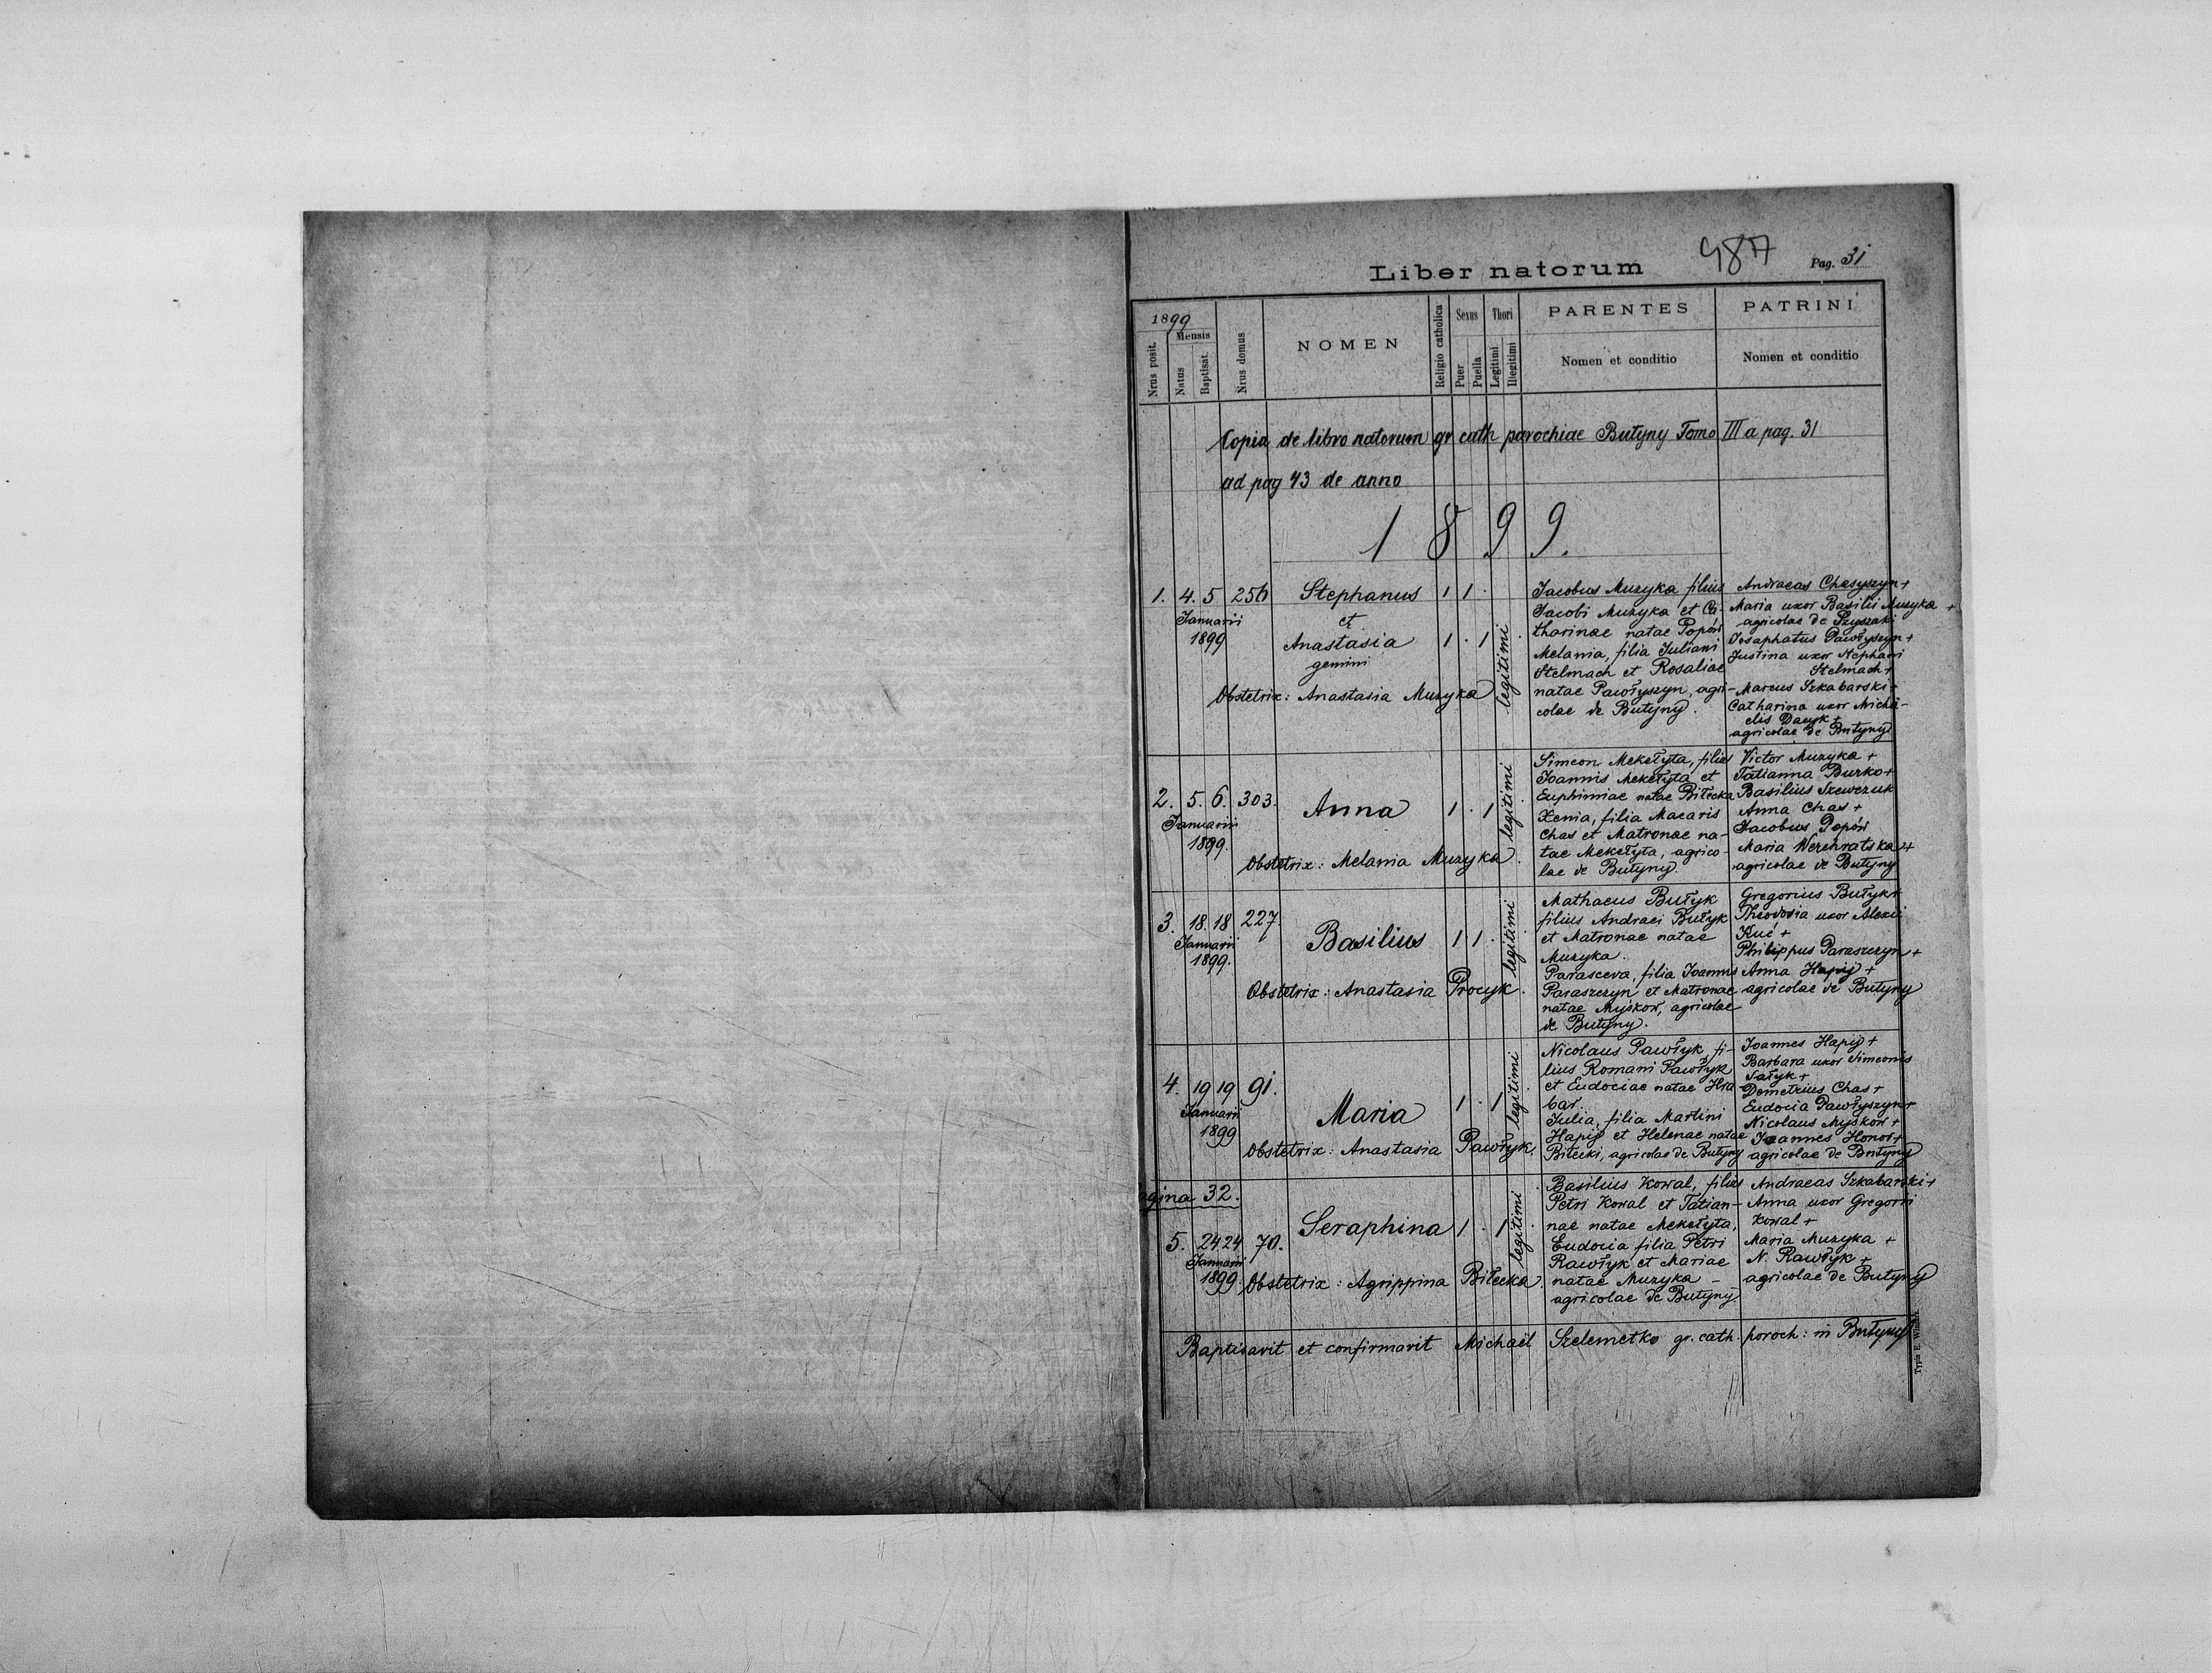 487
Liber natorum
Pag. 31
1899
Mensis
Nrus posit.
Natus
Baptisat.
Nrus domus
NOMEN
Religio catholica
Sexus
Puer
Puella
Thori
Legitimi
Illegitimi
PARENTES
Nomen et conditio
PATRINI
Nomen et conditio
Copia de libro natorum gr cath parochiae Butyny Tomo III a pag. 31
ad pag 43 de anno
1899.
1. 4. 5 256
Januarii
1899
Stephanus 1 1 .
et
Anastasia 1 . 1
gemini
Obstetrix: Anastasia Muzyka
legitimi
Jacobus Muzyka filius
Jacobi Muzyka et Ca-
tharinae natae Popów
Melania, filia Juliani
Stelmach et Rosaliae
natae Pawłyszyn, agri-
colae de Butyny.
Andraeas Chasyszyn +
Maria uxor Basilii Muzyka +
agricolae de Przyszaki
Josaphatus Pawłyszyn +
Justina uxor Stephani
Stelmach +
Marcus Szkabarski +
Catharina uxor Micha-
elis Dacyk +
agricolae de Butyny
2. 5. 6. 303.
Januarii
1899.
Anna 1 . 1
Obstetrix: Melania Muzyka.
legitimi
Simeon Mekełyta, filius
Joannis Mekełyta et
Euphimiae natae Biłecka
Xenia, filia Macaris
Chas et Matronae na-
tae Mekełyta, agrico-
lae de Butyny.
Victor Muzyka +
Tatianna Burko +
Basilius Szewczuk
Anna Chas +
Jacobus Popów
Maria Werchratska +
agricolae de Butyny
3. 18. 18 227.
Januarii
1899.
Basilius 1 1 .
Obstetrix: Anastasia Procyk.
legitimi
Mathaeus Bułyk
filius Andraei Bułyk
et Matronae natae
Muzyka.
Parasceva, filia Joannis
Paraszczyn et Matronae
natae Myśków, agricolae
de Butyny.
Gregorius Bułyk +
Theodosia uxor Alexii
Kuć +
Philippus Paraszczyn +
Anna Hapij +
agricolae de Butyny
4. 19 19 91.
Januarii
1899
Maria 1 . 1
Obstetrix: Anastasia Pawłyk.
legitimi
Nicolaus Pawłyk, fi-
lius Romani Pawłyk
et Eudociae natae Hra-
bar.
Julia, filia Martini
Hapij et Helenae natae
Biłecki, agricolae de Butyny
Joannes Hapij +
Barbara uxor Simeonis
Sałyk +
Demetrius Chas +
Eudocia Pawłyszyn +
Nicolaus Myśków +
Joannes Honor +
agricolae de Butyny
agina 32.
5. 24 24 70.
Januarii
1899.
Seraphina 1 . 1
Obstetrix: Agrippina Biłecka.
legitimi
Basilius Kowal, filius
Petri Kowal et Tatian-
nae natae Mekełyta,
Eudocia filia Petri
Rawłyk et Mariae
natae Muzyka -
agricolae de Butyny
Andraeas Szkabarski +
Anna uxor Gregorii
Kowal +
Maria Muzyka +
N. Rawłyk +
agricolae de Butyny
Baptisavit et confirmavit Michaël Szelemetko gr. cath. paroch: in Butyny